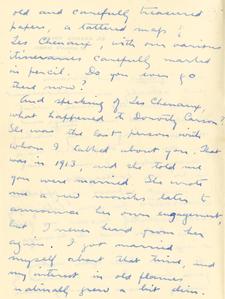 old and carefully treasured
papers, a tattered map,
Les Cheneaux, with our various
itineraries carefully marked
in pencil. Do you ever go
there now?
And speaking of Les Cheneaux,
what happened to Dorothy Carson?
She was the last person with
whom I talked about you. That
was in 1913, and she told me
you were married. She wrote
me a few months later to
announce her own engagement,
but I never heard from her
again. I got married
myself about that time, and
my interest in old flames
naturally grew a bit dim.